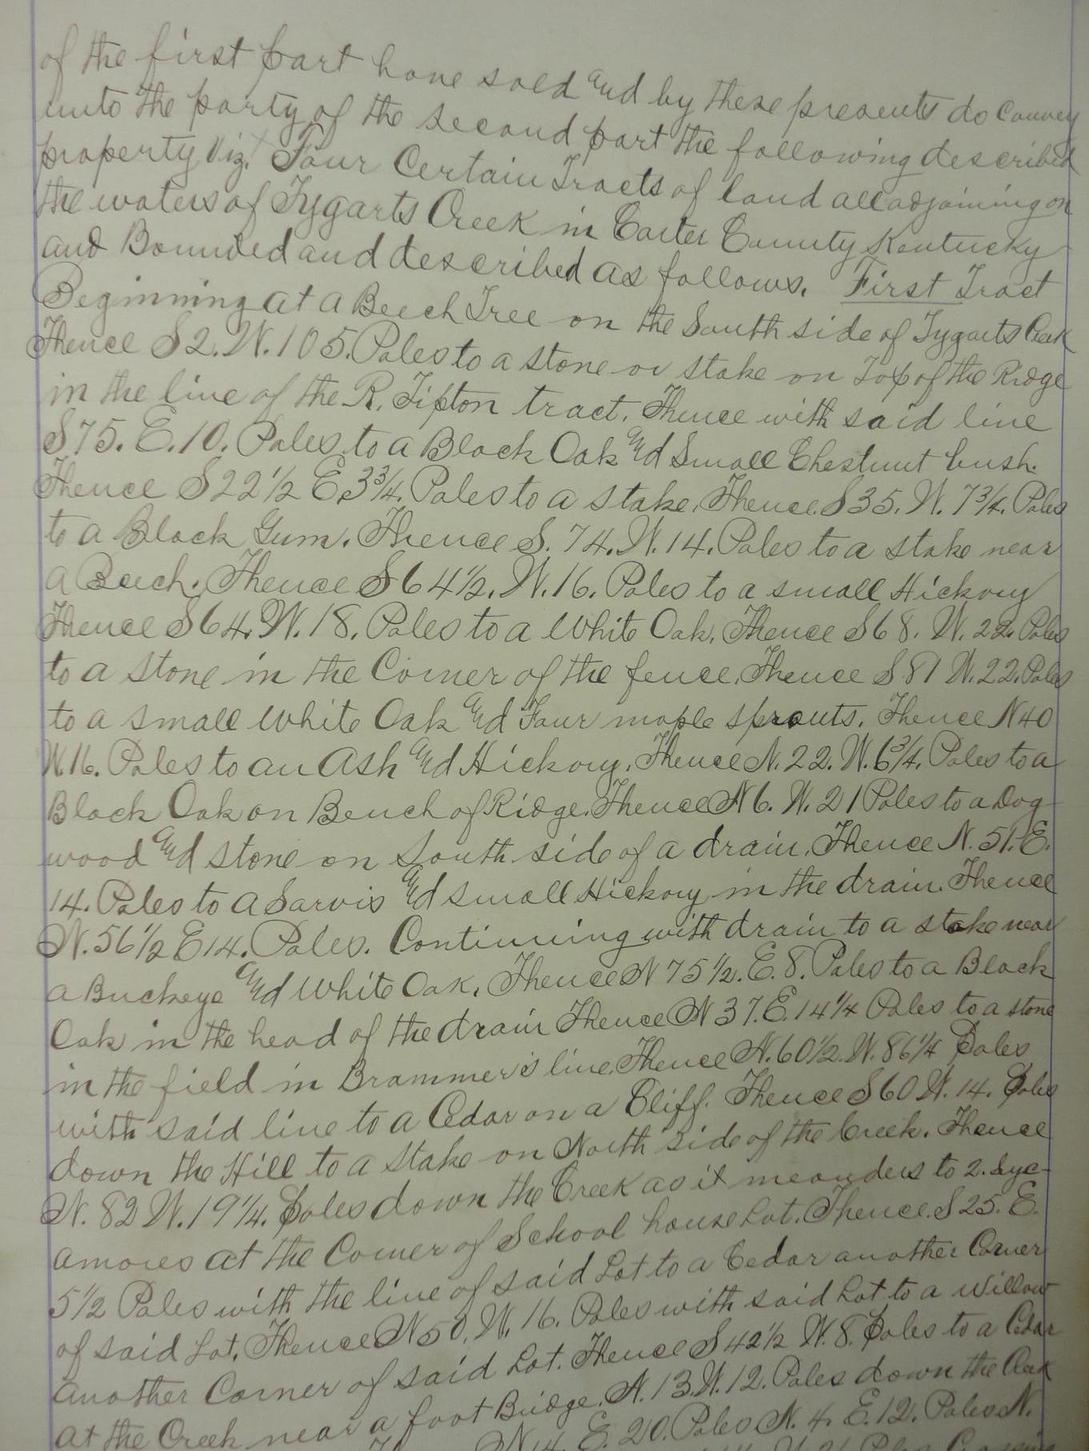 of the first part have sold and by these presents do convey
unto the party of the second part the following described
property Viz. Four Certain Tracts of land all adjoining on
the waters of Tygarts Creek in Carter County Kentucky
and Bounded and described as follows. First Tract
Beginning at a Beech Tree on the South side of Tygarts Creek
Thence S 2. W. 105. Poles to a stone or stake on Top of the Ridge
in the line of the R. Tipton tract. Thence with said line
S 75. E. 10. Poles to a Black Oak and Small Chestnut bush.
Thence S 22 1/2 E. 3 3/4. Poles to a stake. Thence S 35. W. 7 3/4. Poles
to a Black Gum. Thence S. 74. W. 14. Poles to a stake near
a Beech. Thence S 64 1/2. W. 16. Poles to a small Hickory
Thence S 64. W. 18. Poles to a White Oak. Thence S 68. W. 22. Poles
to a stone in the Corner of the fence. Thence S 81 W. 22. Poles
to a small White Oak and Four maple sprouts. Thence N 40
W. 16. Poles to an Ash and Hickory. Thence N. 22. W. 6 3/4. Poles to a
Black Oak on Bench of Ridge. Thence N 6. W. 21 Poles to a Dog-
wood and stone on South side of a drain. Thence N. 51. E.
14. Poles to a Sarvis and small Hickory in the drain. Thence
N. 56 1/2 E 14. Poles. Continuing with drain to a stake near
a Buckeye and White Oak. Thence N 75 1/2. E. 8. Poles to a Black
Oak in the head of the drain Thence N 37. E. 14 1/4 Poles to a stone
in the field in Brammer's line. Thence N. 60 1/2. W. 86 1/4 Poles
with said line to a Cedar on a Cliff. Thence S 60 W. 14. Poles
down the Hill to a stake on North side of the Creek. Thence
N. 82 W. 19 1/4. Poles down the Creek as it meanders to 2. Syc-
amores at the Corner of School house Lot. Thence. S 25. E.
5 1/2 Poles with the line of said Lot to a Cedar another Corner
of said Lot. Thence N 50. W. 16. Poles with said Lot to a Willow
another Corner of said Lot. Thence S 42 1/2 W. 8. Poles to a Cedar
at the Creek near a foot Bridge. N. 13. W. 12. Poles down the Creek
E. 20. Poles N. 4. E. 12. Poles N.